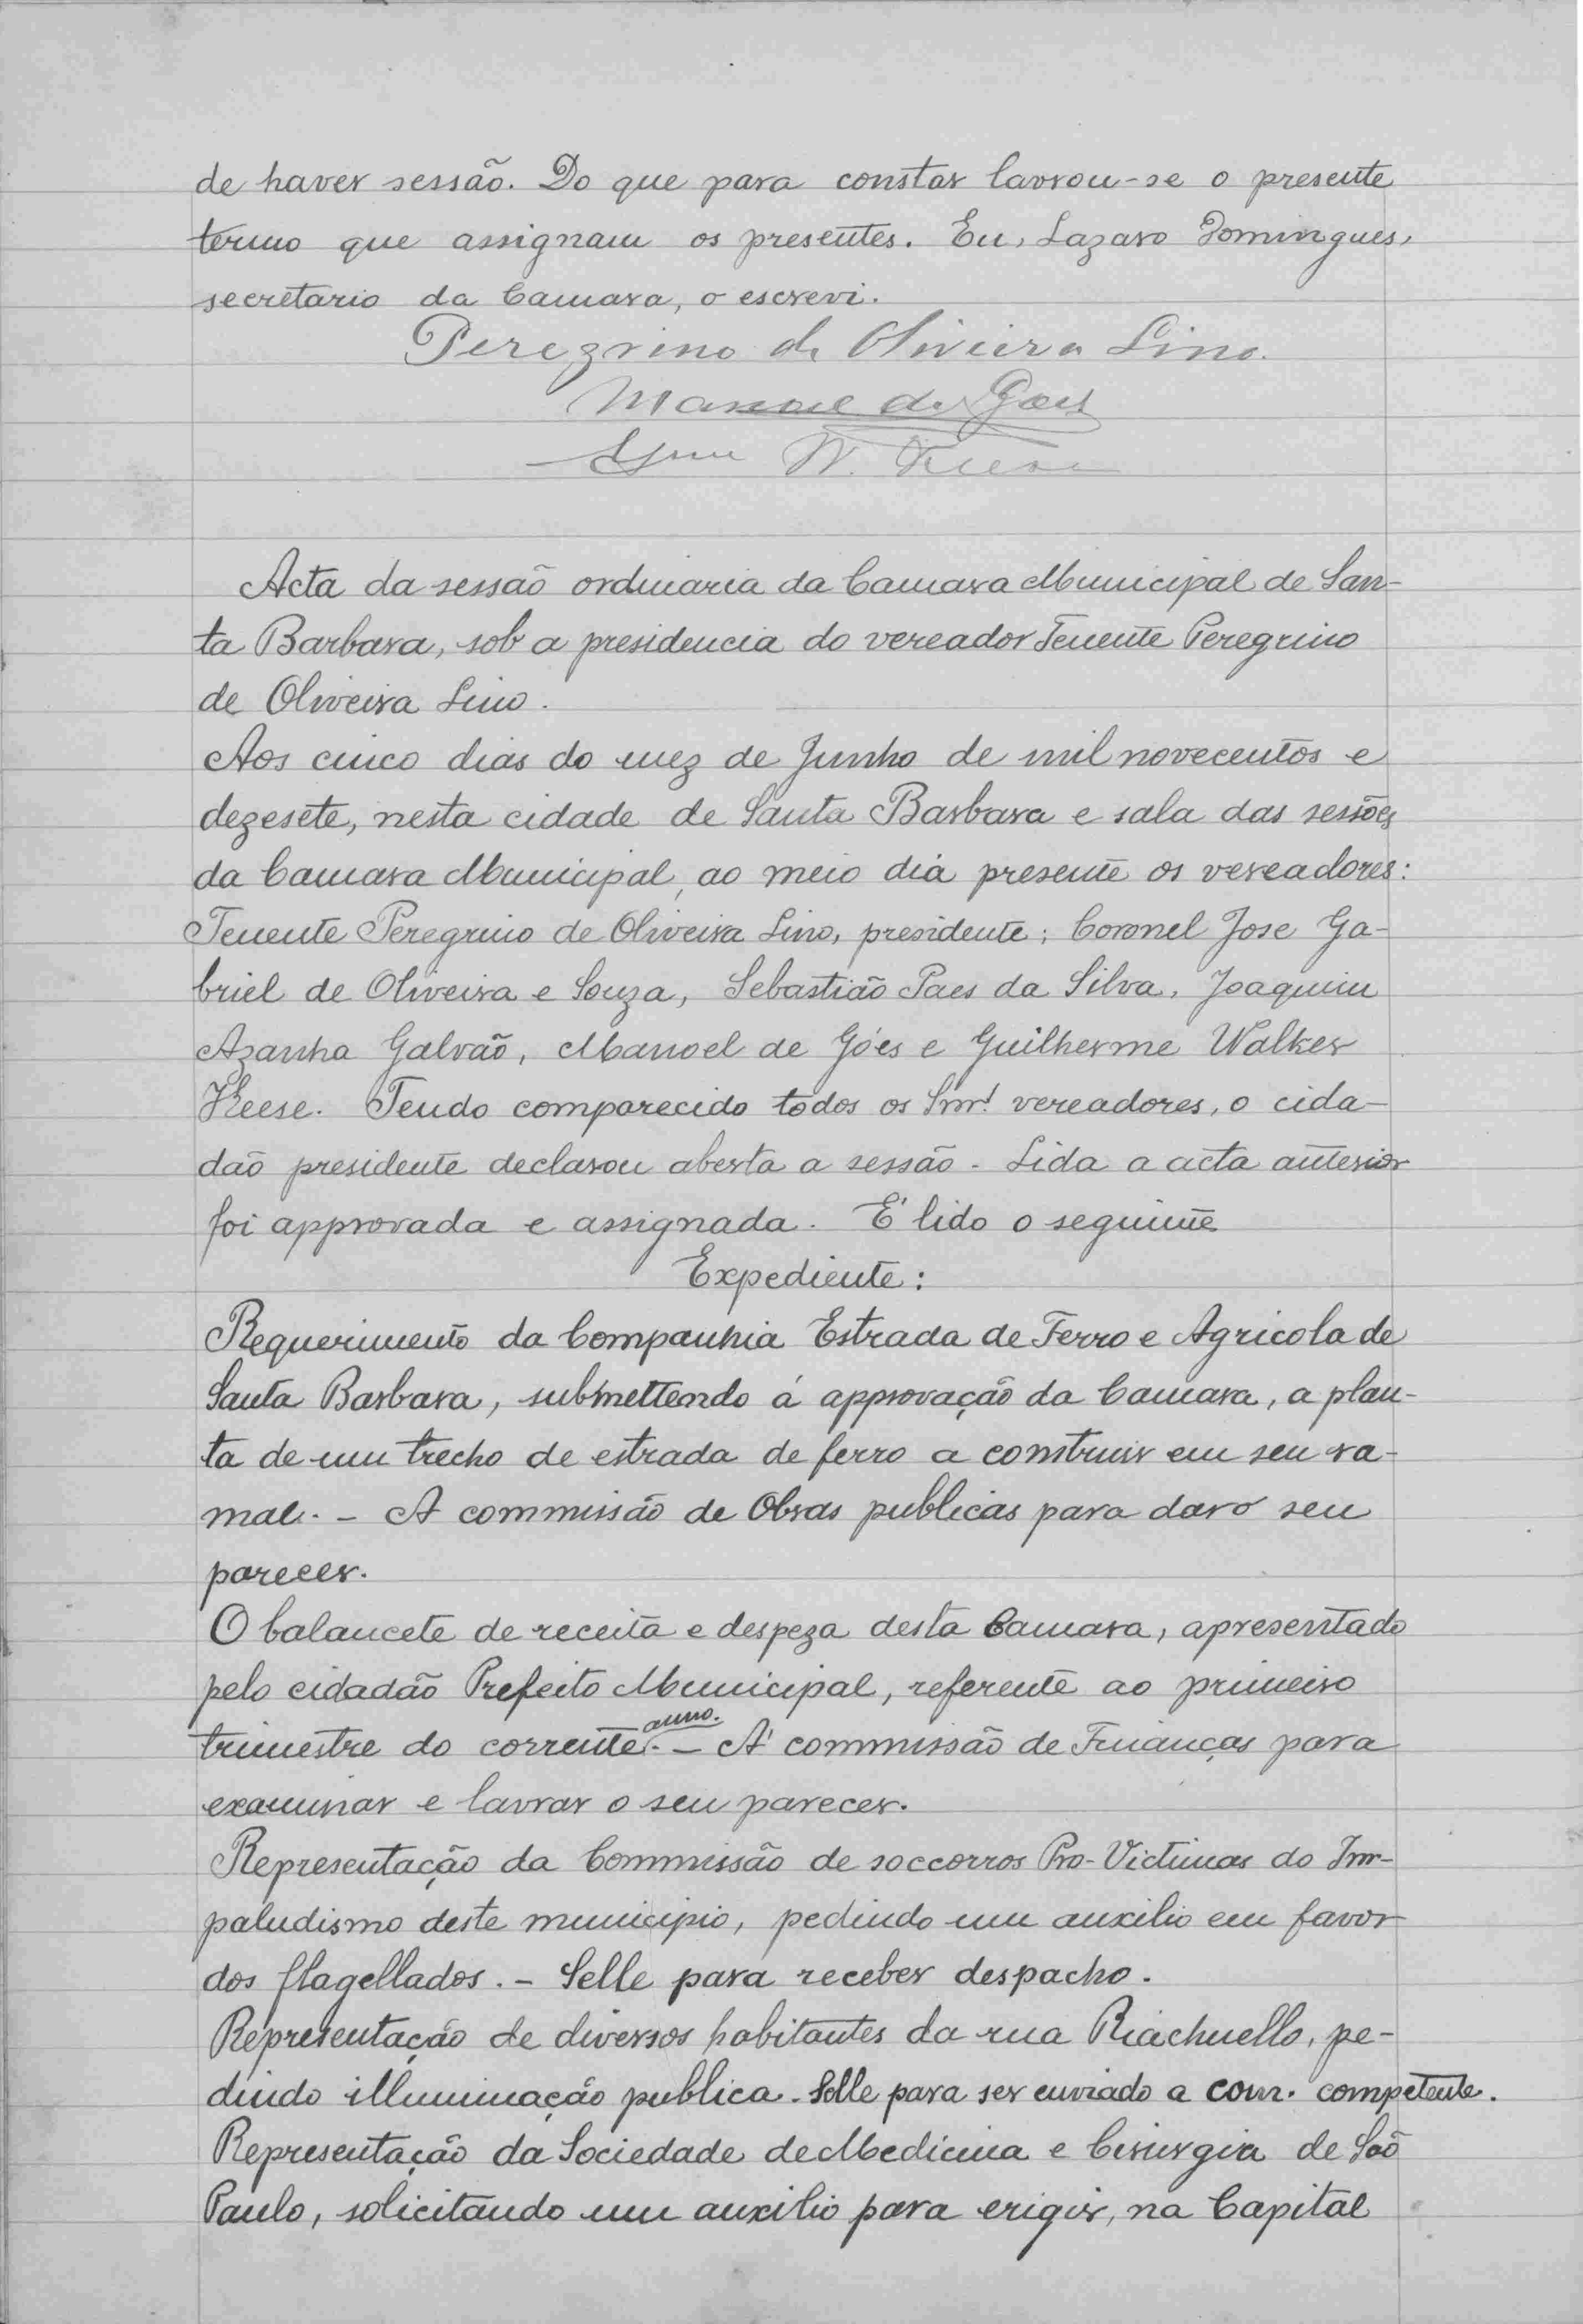 de haver sessão. Do que para constar lavrou-se o presente
termo que assignam os presentes. Eu, Lazaro Domingues,
secretario da Camara, o escrevi.
Peregrino de Oliveira Lino.
Manoel de Góes
W.
Acta da sessão ordinaria da Camara Municipal de San-
ta Barbara, sob a presidencia do vereador Tenente Peregrino
de Oliveira Lino.
Aos cinco dias do mez de Junho de mil novecentos e
dezesete, nesta cidade de Santa Barbara e sala das sessões
da Camara Municipal, ao meio dia presente os vereadores:
Tenente Peregrino de Oliveira Lino, presidente; Coronel Jose Ga-
briel de Oliveira e Souza, Sebastião Paes da Silva, Joaquim
Azanha Galvão, Manoel de Góes e Guilherme Walker
Keese. Tendo comparecido todos os Snrs. vereadores, o cida-
daõ presidente declarou aberta a sessão. Lida a acta anterior
foi approvada e assignada. É lido o seguinte
Expediente:
Requerimento da Companhia Estrada de Ferro e Agricola de
Santa Barbara, submettendo á approvação da Camara, a plan-
ta de um trecho de estrada de ferro a construir em seu ra-
mal. - A commissão de Obras publicas para dar o seu
parecer.
O balancete de receita e despeza desta Camara, apresentado
pelo cidadão Prefeito Municipal, referente ao primeiro
trimestre do corrente anno. - Á commissão de Finanças para
examinar e lavrar o seu parecer.
Representação da Commissão de soccorros Pro-Victimas do Im-
paludismo deste municipio, pedindo um auxilio em favor
dos flagellados. - Selle para receber despacho.
Representação de diversos habitantes da rua Riachuello, pe-
dindo illuminação publica. Selle para ser enviado a com. competente.
Representação da Sociedade de Medicina e Cirurgia de Saõ
Paulo, solicitando um auxilio para erigir, na Capital